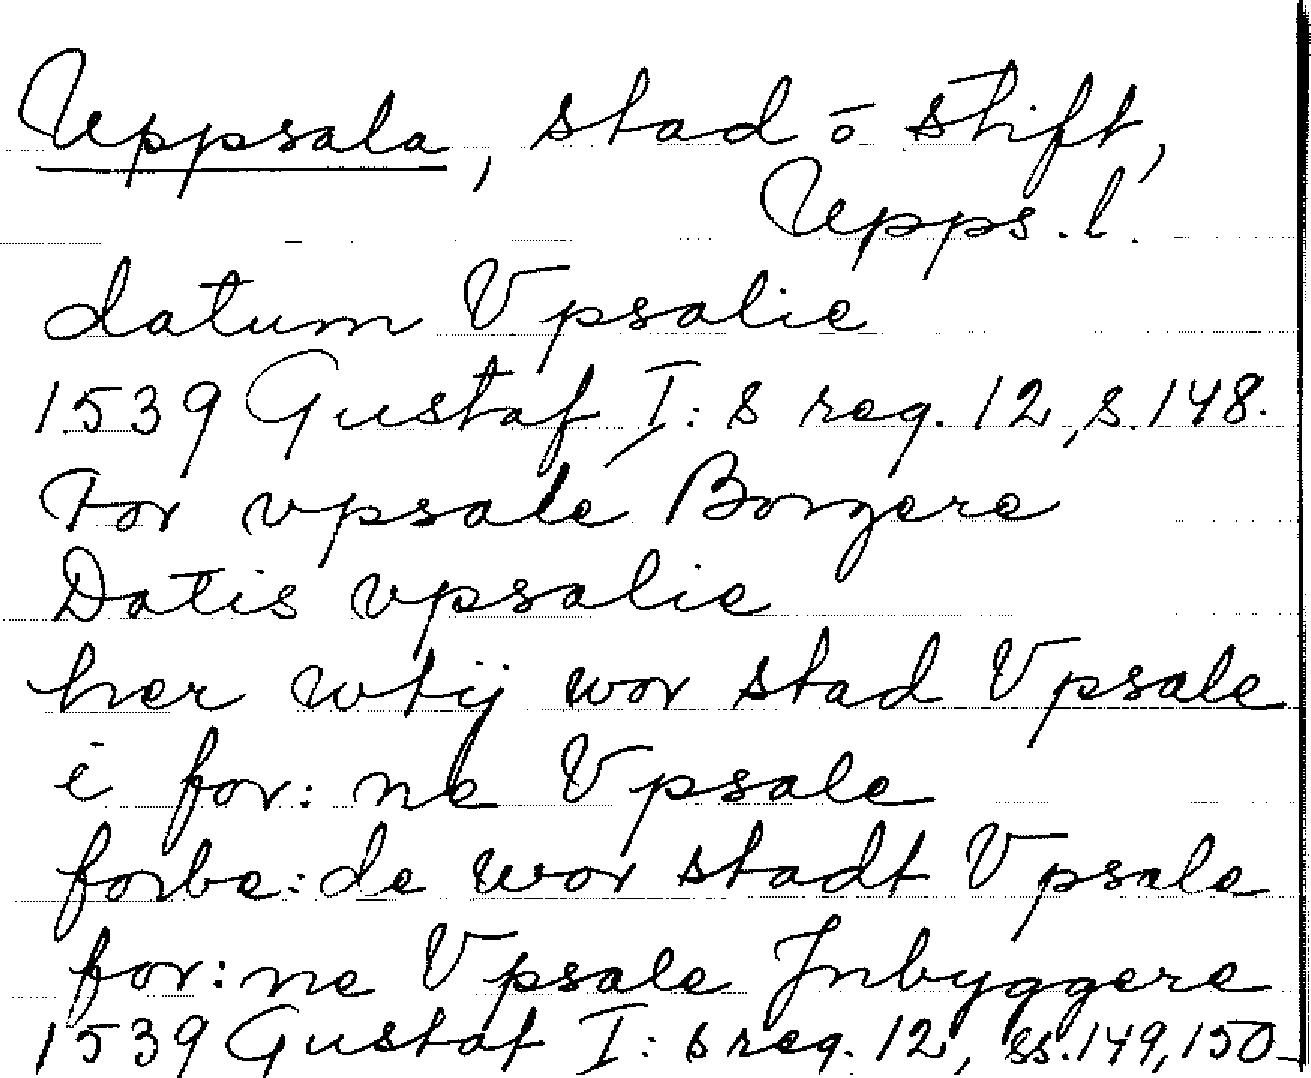 Uppsala, stad o stift,
Upps. l.
datum Vpsalie
1539 Gustaf I:s reg. 12, s. 148.
For vpsale Borgere
Datis vpsalie
her wtij wor stad Vpsale
i for:ne Vpsale
forbe:de wor stadt Vpsale
for:ne Vpsale Jnbyggere
1539 Gustaf I:s reg. 12, ss. 149, 150